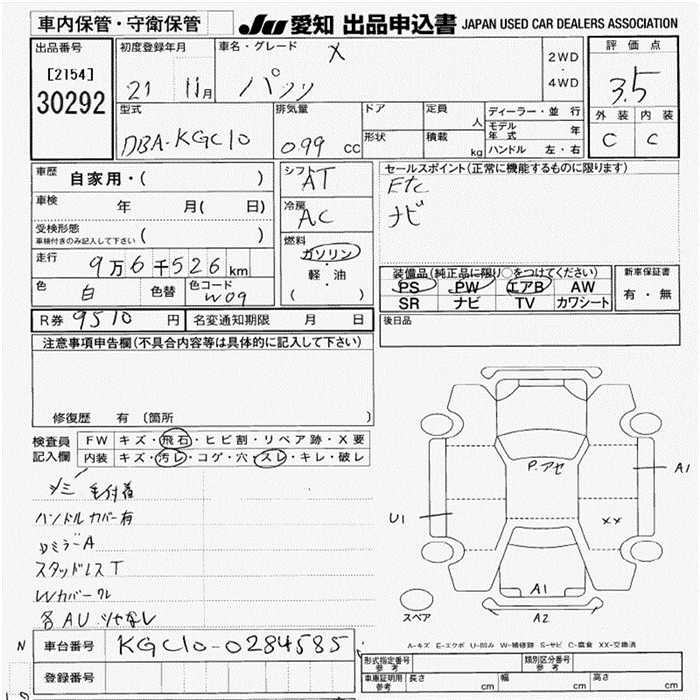 車内保管・守衛保管
JU 愛知 出品申込書 JAPAN USED CAR DEALERS ASSOCIATION
出品番号
[2154]
30292
初度登録年月
21 11月
車名・グレード
X
パッソ
2WD
・
4WD
評価点
3.5
外装 内装
C C
型式
DBA-KGC10
排気量
0.99 cc
ドア
形状
定員
人
積載
kg
ディーラー・並行
モデル年式 年
ハンドル 左・右
車歴 自家用・( )
車検 年 月( 日)
受検形態
車検付きのみ記入して下さい ( )
走行 9万6千526km
色 白 色替 色コード W09
シフト AT
冷房 AC
燃料
ガソリン
・
軽・油
( )
セールスポイント(正常に機能するものに限ります)
Etc
ナビ
装備品(純正品に限り○をつけてください)
PS PW エアB AW
SR ナビ TV カワシート
新車保証書
有・無
R券 9510 円 名変通知期限 月 日
後日品
注意事項申告欄(不具合内容等は具体的に記入して下さい)
修復歴 有 〔箇所
検査員記入欄
FW キズ・飛石・ヒビ割・リペア跡・X要
内装 キズ・汚レ・コゲ・穴・スレ・キレ・破レ
シミ 毛付着
ハンドルカバー有
スタッドレスT
Wカバーワレ
各AU ツヤなし
P.アセ
A1
U1
XX
A1
A2
スペア
A-キズ E-エクボ U-凹み W-補修跡 S-サビ C-腐食 XX-交換済
N
車台番号 KGC10-0284585
登録番号
形式指定番号
参考
類別区分番号
参考
車庫証明用
参考
長さ cm 幅 cm 高さ cm